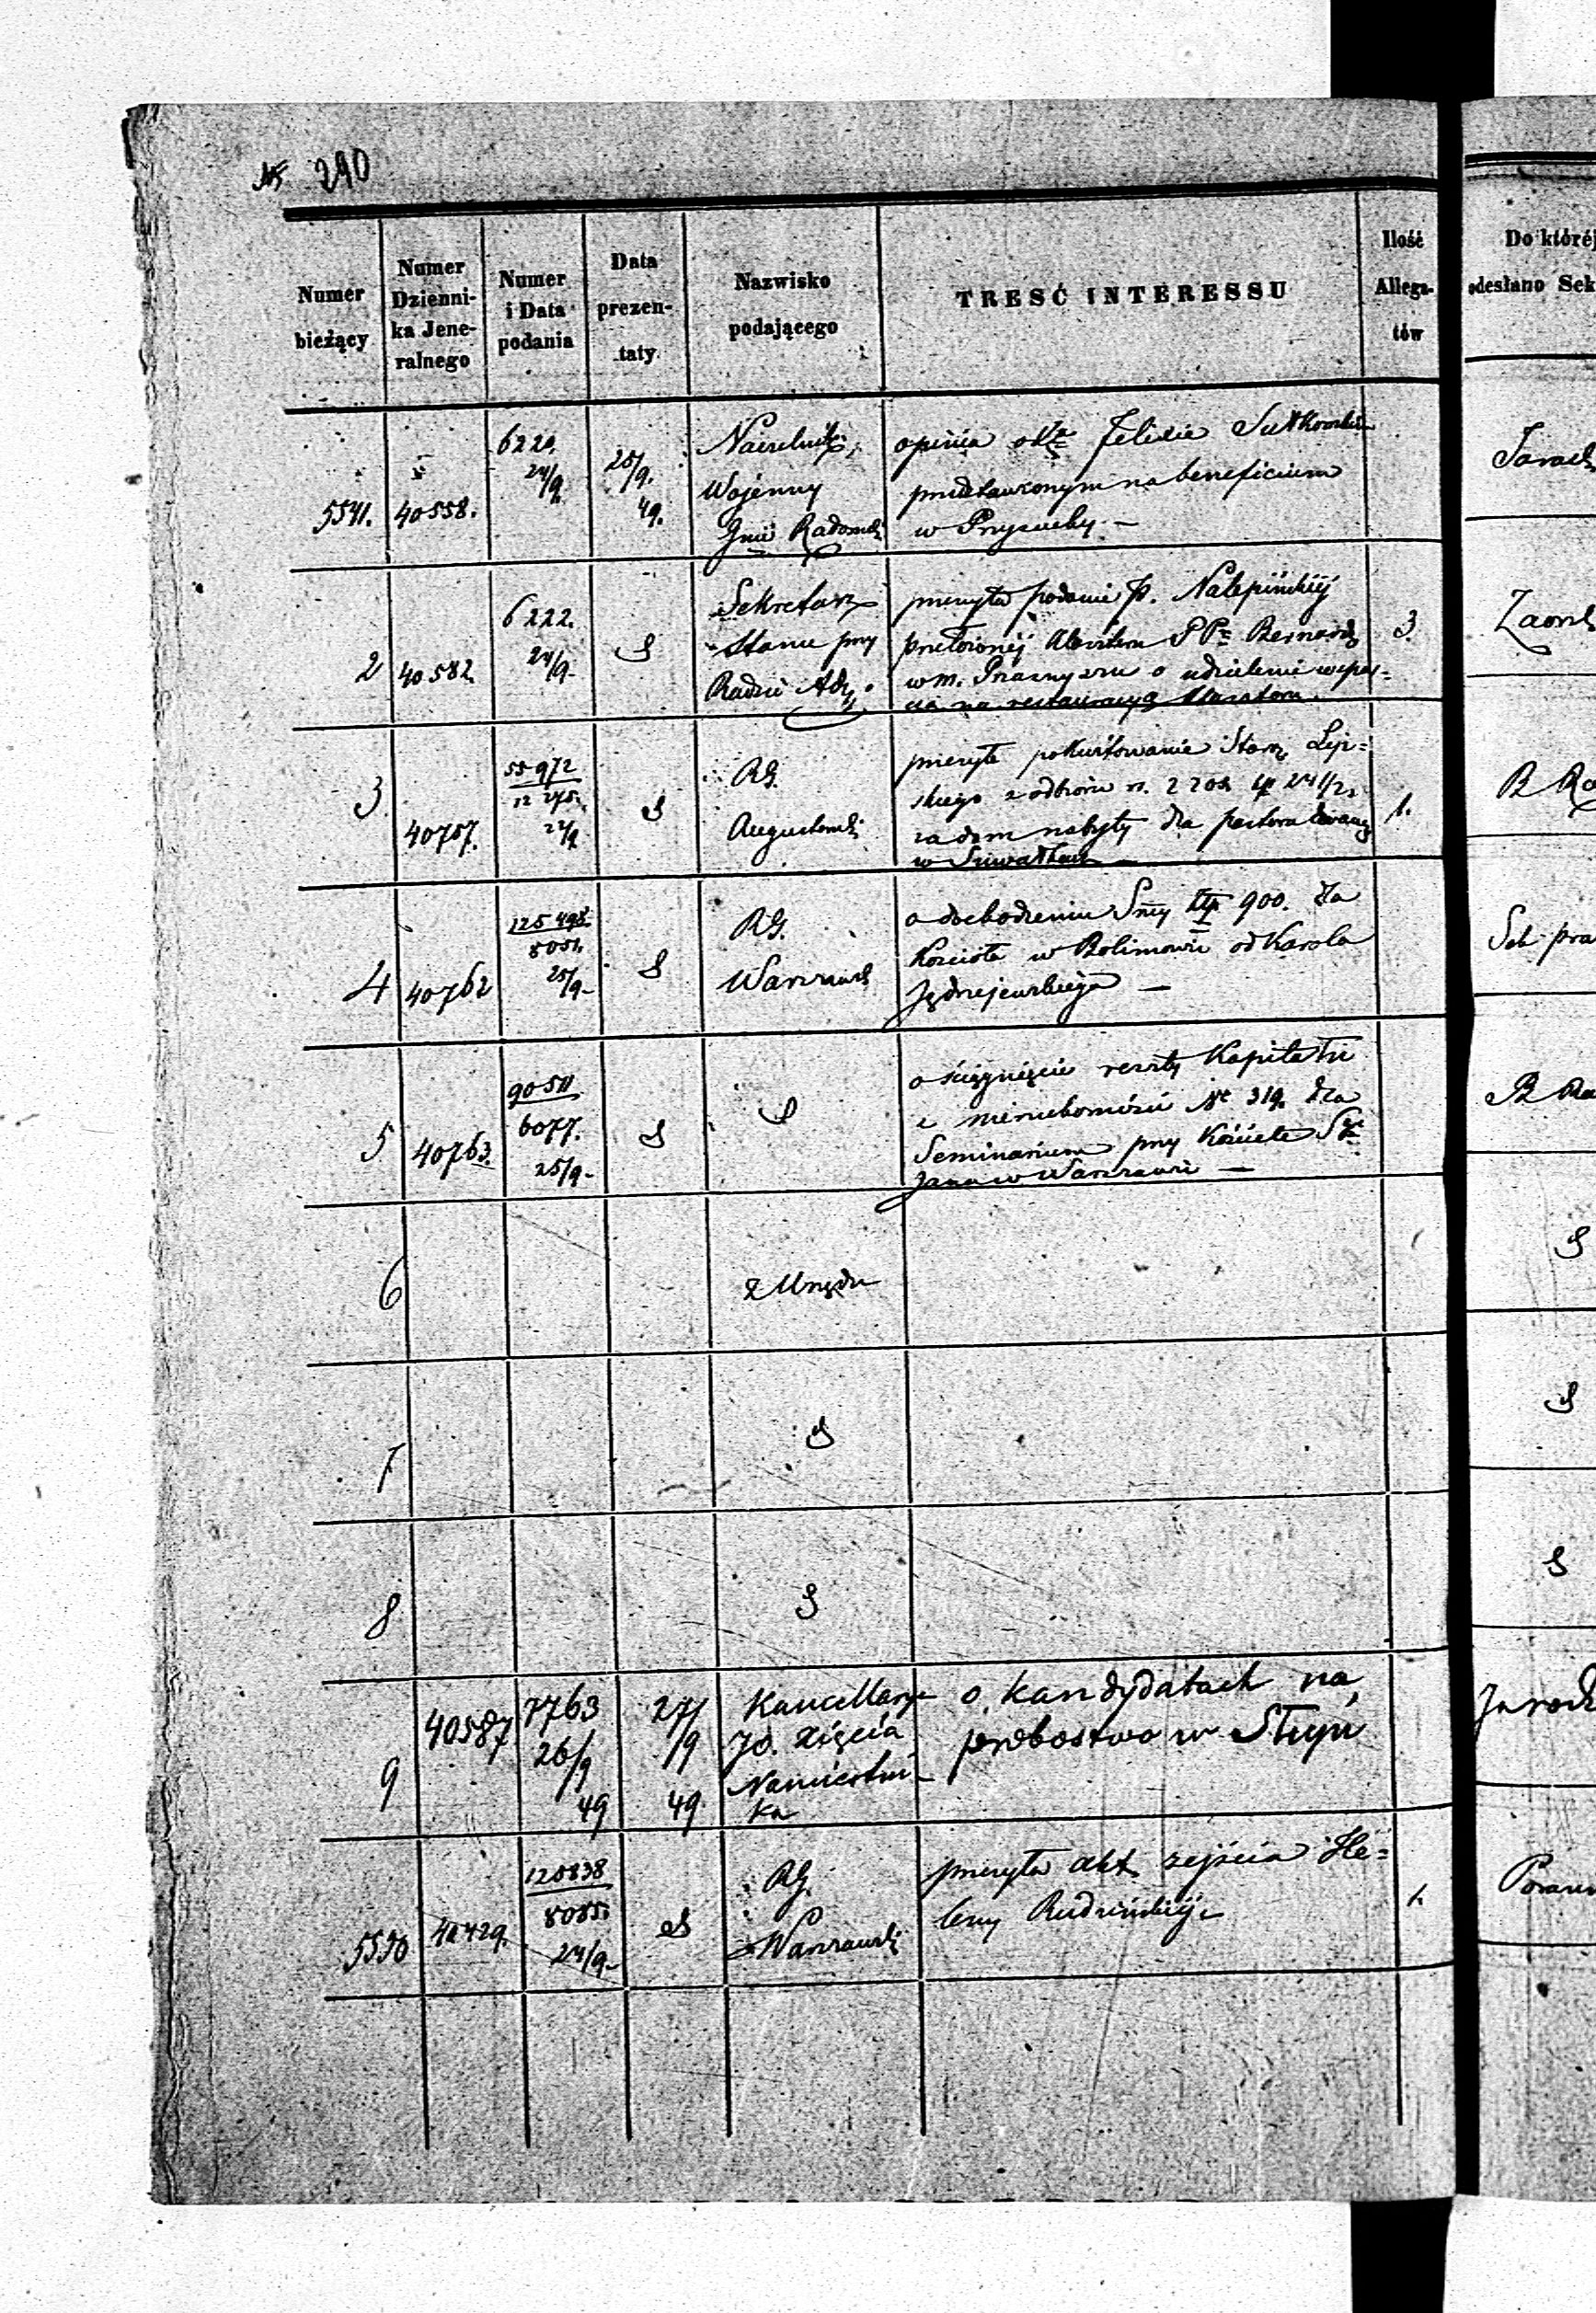 № 290
Numer bieżący
Numer Dzienni- ka Jene- ralnego
Numer i Data podania
Data prezen- taty
Nazwisko podającego
TREŚĆ INTERESSU
Ilość Allega- tów
Do któréj
odesłano Sek
5541. 40558.
6220.
24/9.
25/9.
49.
Naczelnik
Wojenny
Gnii Radomsk
opinia o Felixie Sutkowskim
przedstawionym na beneficium
w Przysuchy. —
2 40582.
6222.
24/9.
Sekretarz
Stanu przy
Radzie Adm.
przesyła podanie P. Nalepińskiéj
przełożonéj klasztoru PP. Bernard
w m. Prasnyszu o udzielenie wspar=
cia na restauracyą klasztoru.
3.
Zaord
3
40757.
55972
12275.
22/9
RG.
Augustowski
przesyła pokwitowanie Starz. Lip=
skiego z odbioru rs. 2208 kp 24 1/2
za dom nabyty dla pastora Ewang
w Suwałkach —
1.
R Ra
4 40762
125498.
8051.
25/9-
RG.
Warszawsk
o dochodzeniu Smy złp 900. dla
Kościoła w Bolimowie od Karola
Jędrzejewskiego —
Sek pra
5 40763.
90511.
6077.
25/9-
o ściągnięcie reszty Kapitału
z nieruchomości № 319. dla
Seminarium przy Kościele Sgo
Jana w Warszawie —
R Ra
6
z Urzędu
7
8
9
40587
7763
26/9
49
27/
/9
49.
Kancellarya
JO. Xięcia
Namiestni-
ka
o kandydatach na
probostwo w Słupi
5550 40429.
125838
8085.
24/9-
RG.
Warszawski
przesyła akt zejścia He=
leny Rudzińskiéj
1.